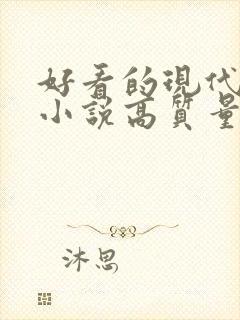 好看的现代
小説高質量
沐思